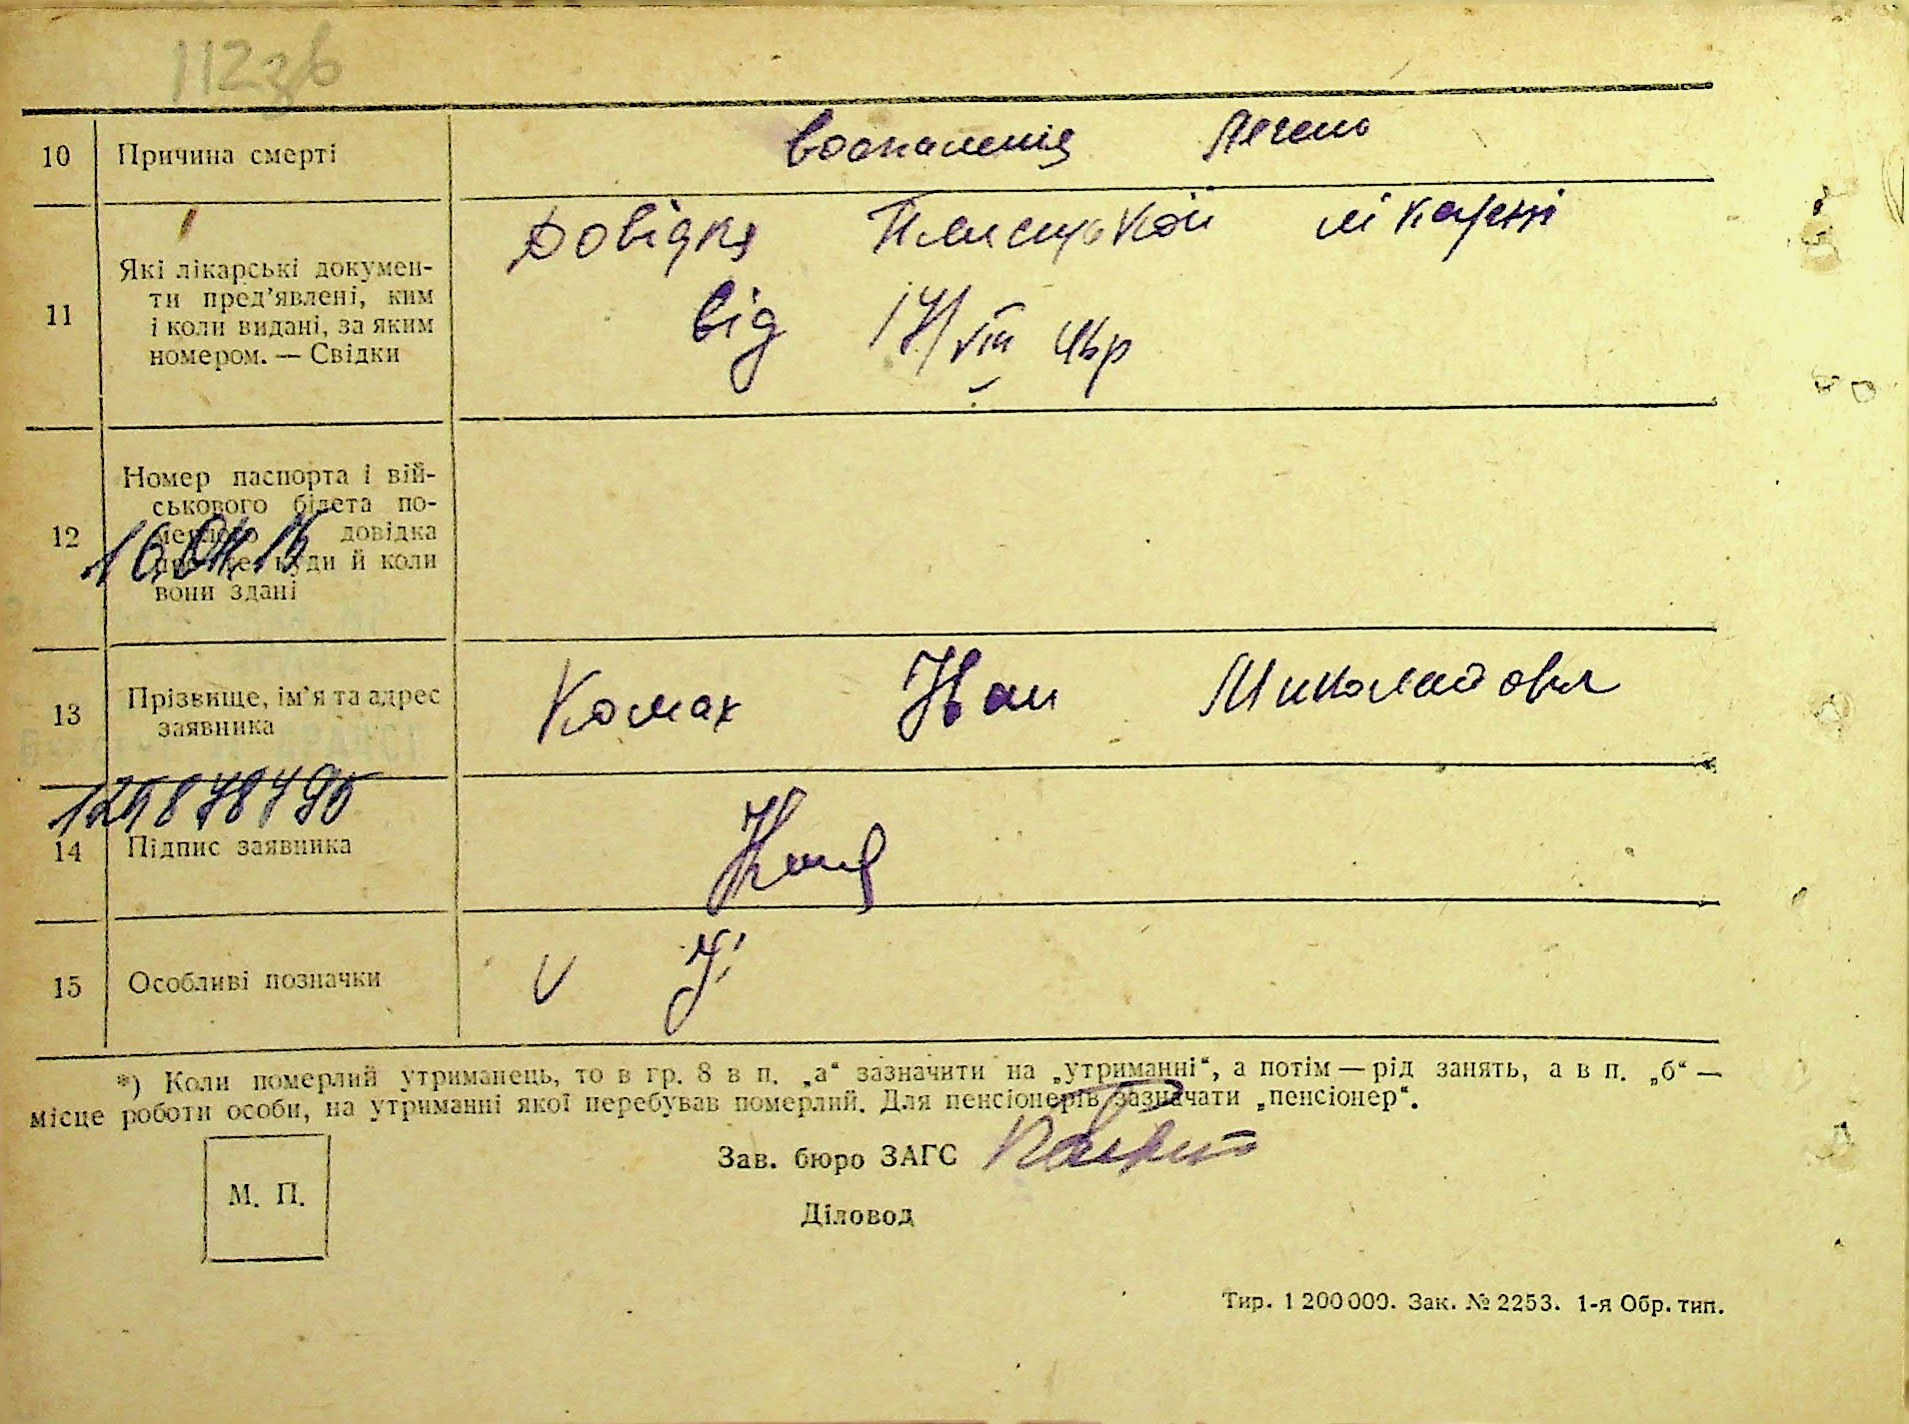 112зв
10 Причина смерті воспаления легень
11 Які лікарські докумен-
ти пред’явлені, ким
і коли видані, за яким
номером. — Свідки
Довідка лікарні
від 17/VIII
12 Номер паспорта і вій-
ськового білета по-
мерлого довідка
куди й коли
вони здані
13 Прізвище, ім’я та адрес
заявника
Комах Иван
14 Підпис заявника
15 Особливі позначки
*) Коли померлий утриманець, то в гр. 8 в п. „а“ зазначити на „утриманні“, а потім — рід занять, а в п. „б“ —
місце роботи особи, на утриманні якої перебував померлий. Для пенсіонерів зазначати „пенсіонер“.
Зав. бюро ЗАГС
М. П.
Діловод
Тир. 1 200 000. Зак. № 2253. 1-я Обр. тип.